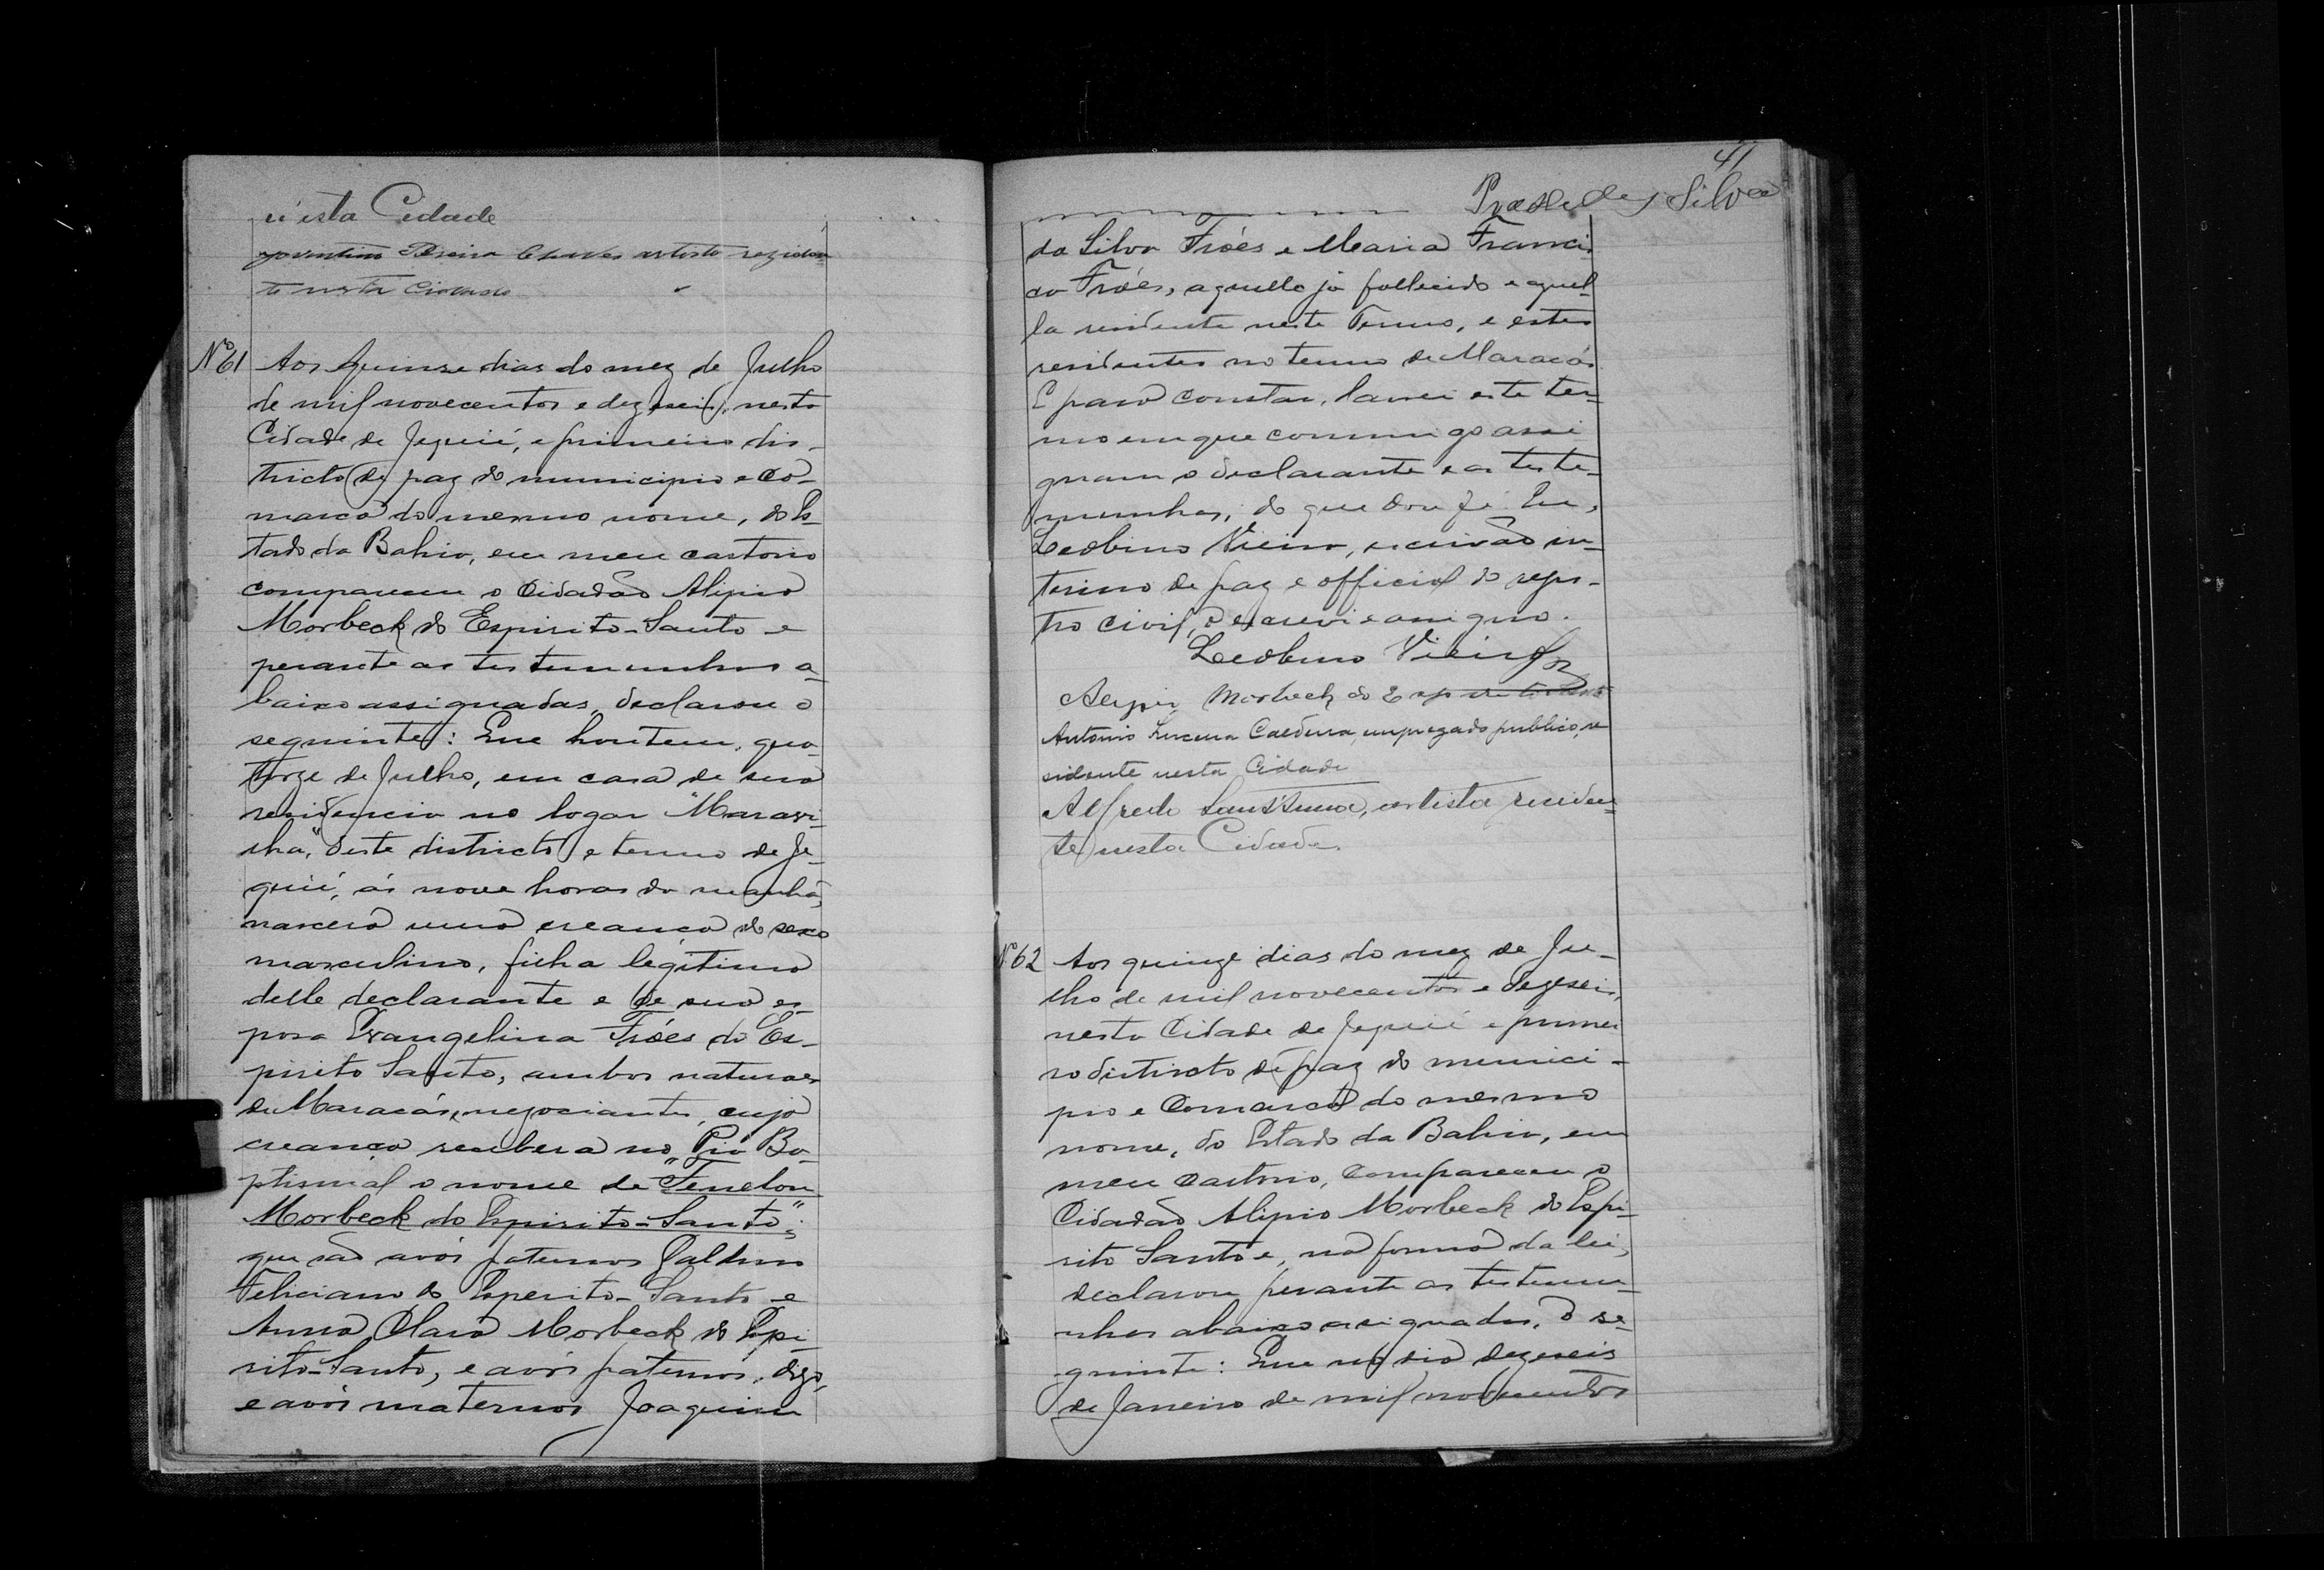 n'esta Cidade
Jovintino Pereira Chaves artista reziden-
te nesta Cidade
Nº 61 Aos quinse dias do mez de Julho
de mil novecentos e dezeseis, nesta
Cidade de Jequié, e primeiro dis-
tricto de paz do municipio e co-
marca do mesmo nome, do Es-
tado da Bahia, em meu cartorio
compareceu o Cidadão Alipio
Morbeck do Espirito-Santo e
perante as testemunhas a-
baixo assignadas, declarou o
seguinte: Que hontem, qua-
torze de Julho, em casa de sua
residencia no logar "Maravi-
lha", deste districto e termo de Je-
quié, ás nove horas da manhã,
nascera uma creança do sexo
masculino, filha legitima
delle declarante e de sua es-
posa Evangelina Fróes do Es-
pirito Santo, ambos naturaes
de Maracás, negociantes, cuja
creança recebera na Pia Ba-
ptismal o nome de "Fenelon
Morbeck do Espirito-Santo";
que são avós paternos Galdino
Feliciano do Esperito-Santo e
Anna Clara Morbeck do Espi-
rito-Santo, e avós paternos, digo,
e avós maternos Joaquim
41
Praxedes Silva
da Silva Fróes e Maria Francis-
ca Fróes, aquelle já fallecido e aquel-
la residente neste Termo, e estes
residentes no termo de Maracás
E para constar, lavrei este ter-
mo em que commigo assi
gnam o declarante e as teste-
munhas, do que dou fé. Eu,
Leobino Vieira, escrivão in-
terino de paz e official do regis-
tro civil, o escrevi e assigno.
Leobino Vieira
Alipio Morbeck do Espirito Santo
Antonio Lucena Caldeira, empregado publico, re
sidente nesta Cidade
Alfredo Sant'Anna, artista residen-
te nesta Cidade.
Nº 62 Aos quinze dias do mez de Ju-
lho de mil novecentos e dezeseis,
nesta Cidade de Jequié e primei
ro districto de paz do munici-
pio e Comarca do mesmo
nome, do Estado da Bahia, em
meu Cartorio, compareceu o
Cidadão Alipio Morbeck do Espi-
rito Santo e, na forma da lei,
declarou perante as testemu-
nhas abaixo assignadas, o se-
guinte: Que no dia dezeseis
de Janeiro de mil novecentos